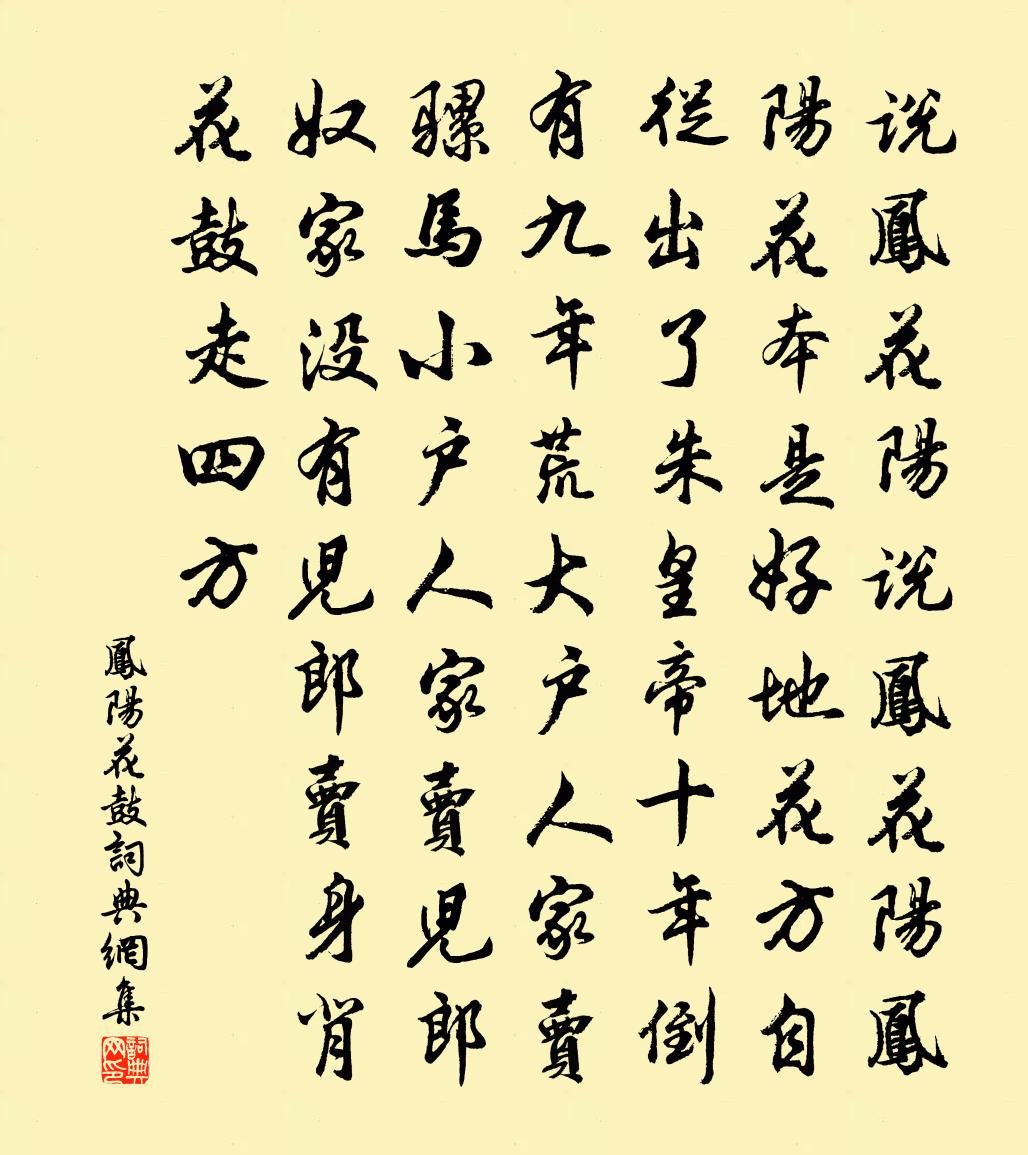 說鳳花陽說鳳花陽鳳
陽花本是好地花方自
從出了朱皇帝十年倒
有九年荒大戶人家賣
騾馬小戶人家賣兒郎
奴家沒有兒郎賣身背
花鼓走四方
鳳陽花鼓詞典網集
詞典网印